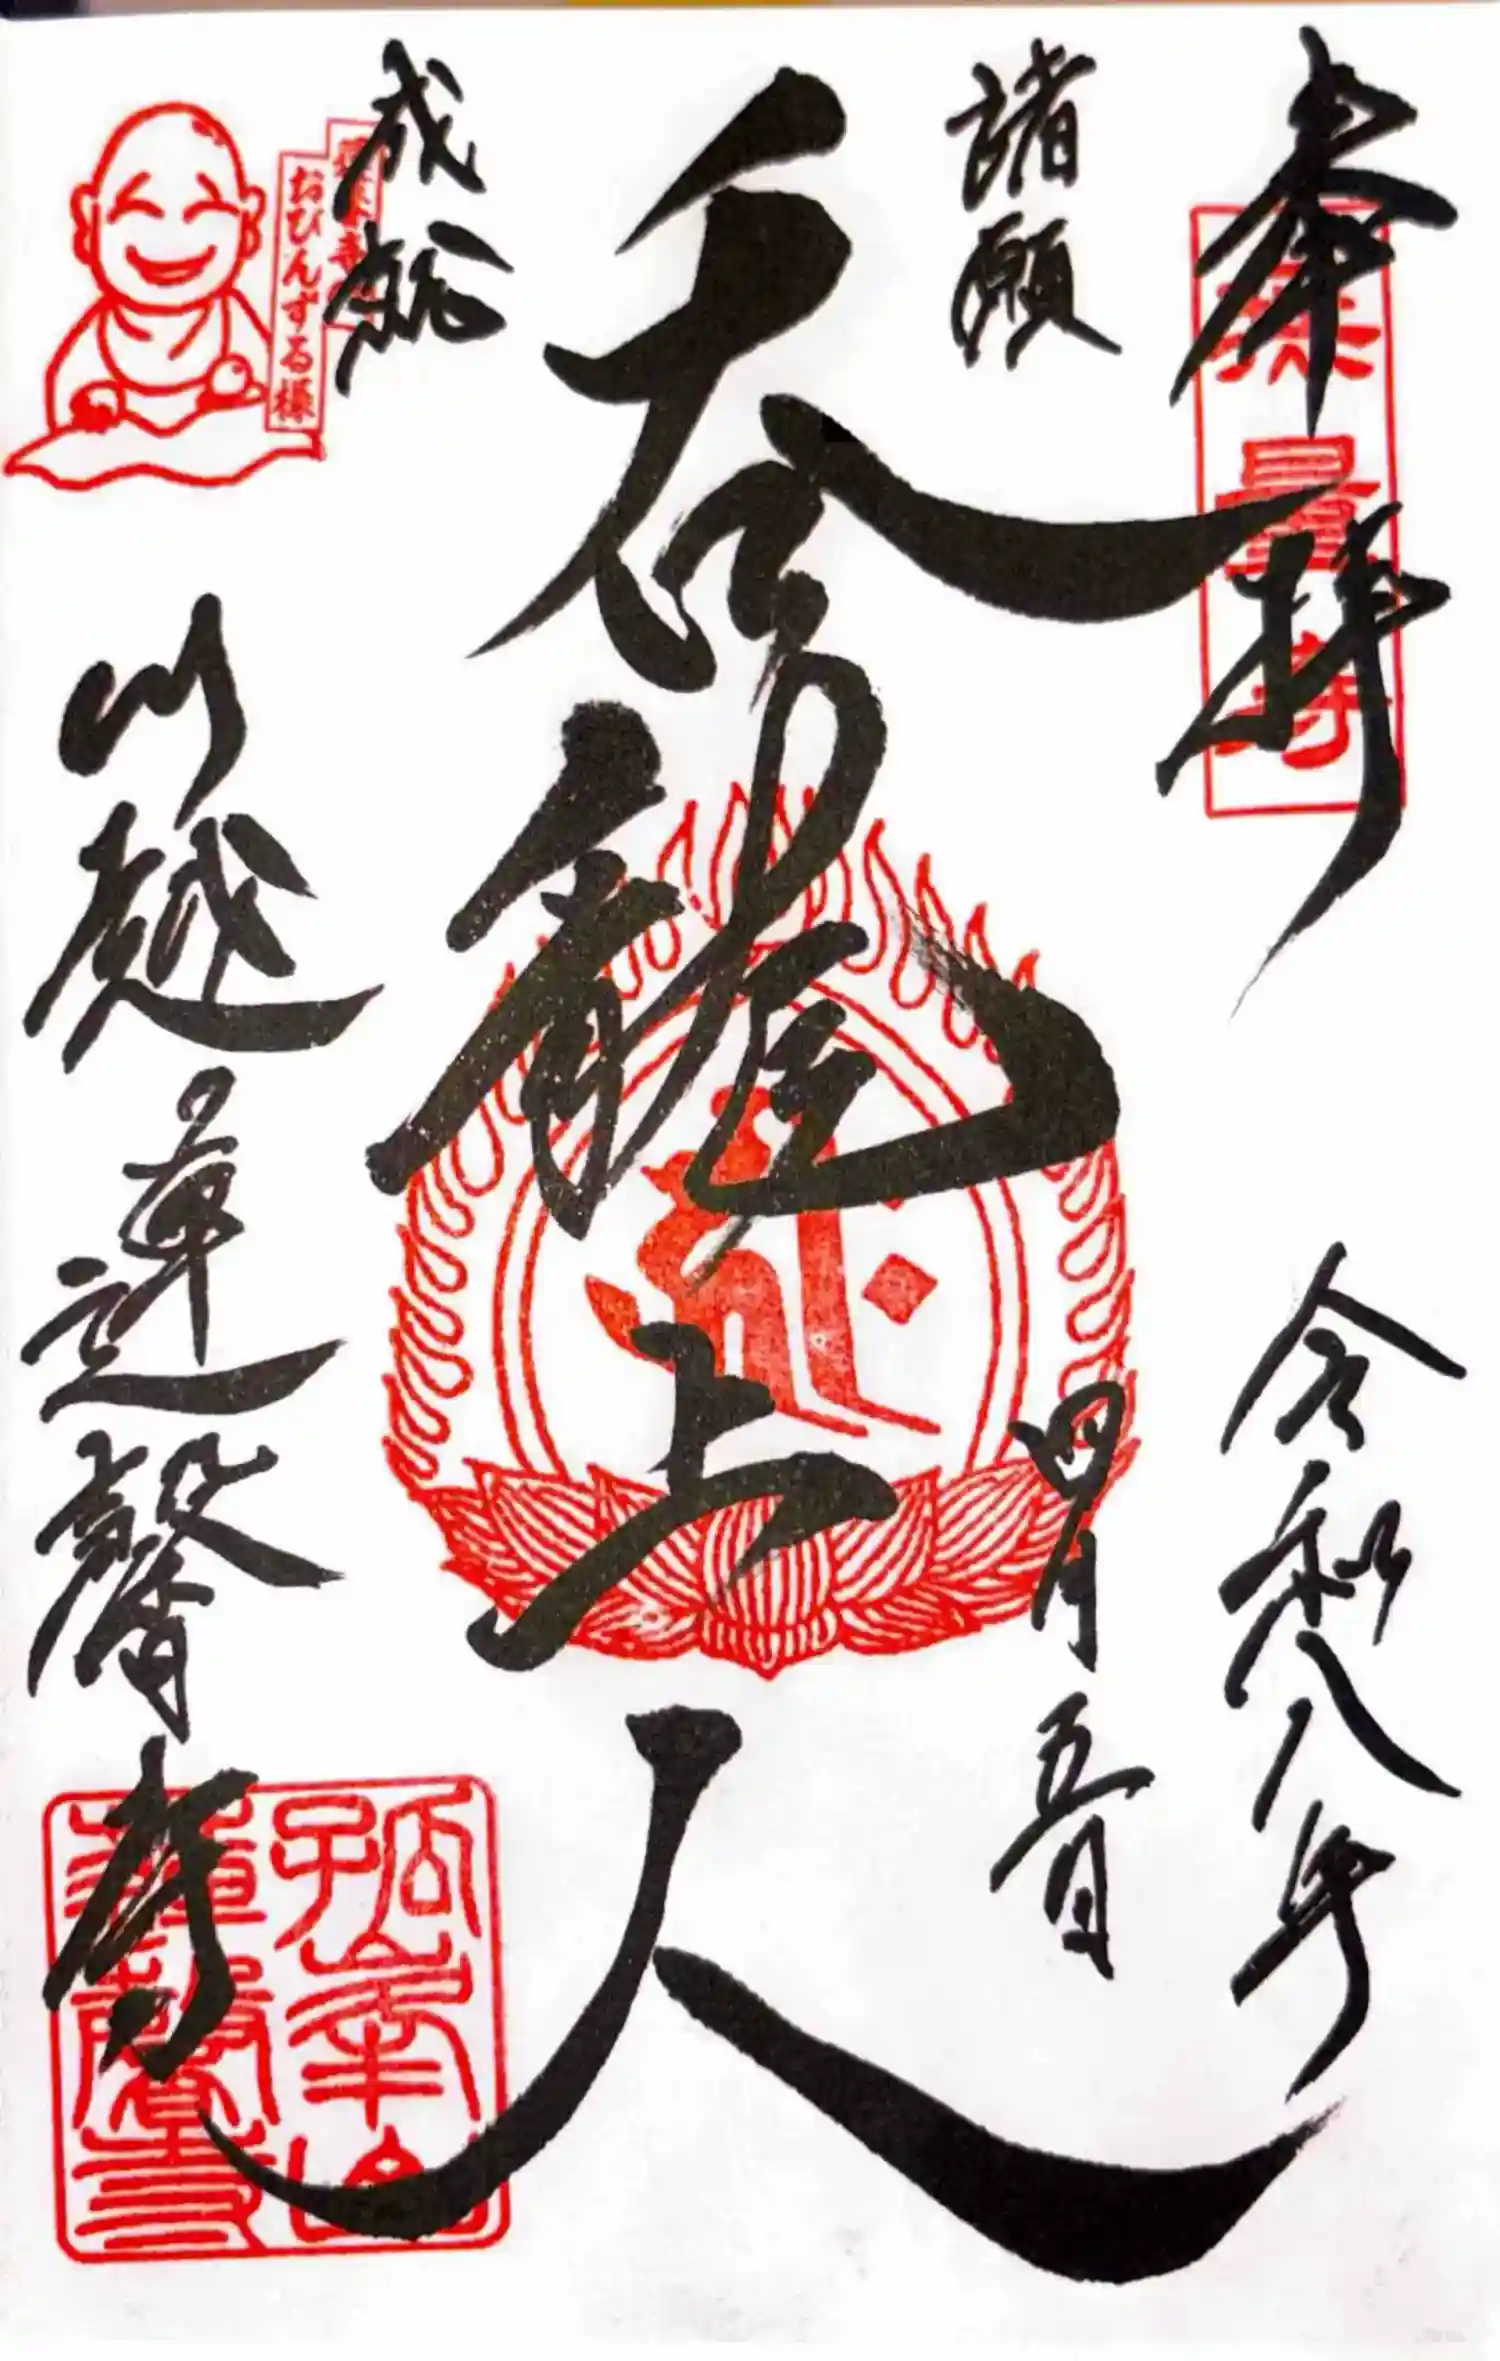 奉拝
令和八年
四月五日
諸願
成就
呑龍上人
川越蓮馨寺
おびんずる様
孤峯山
蓮馨寺